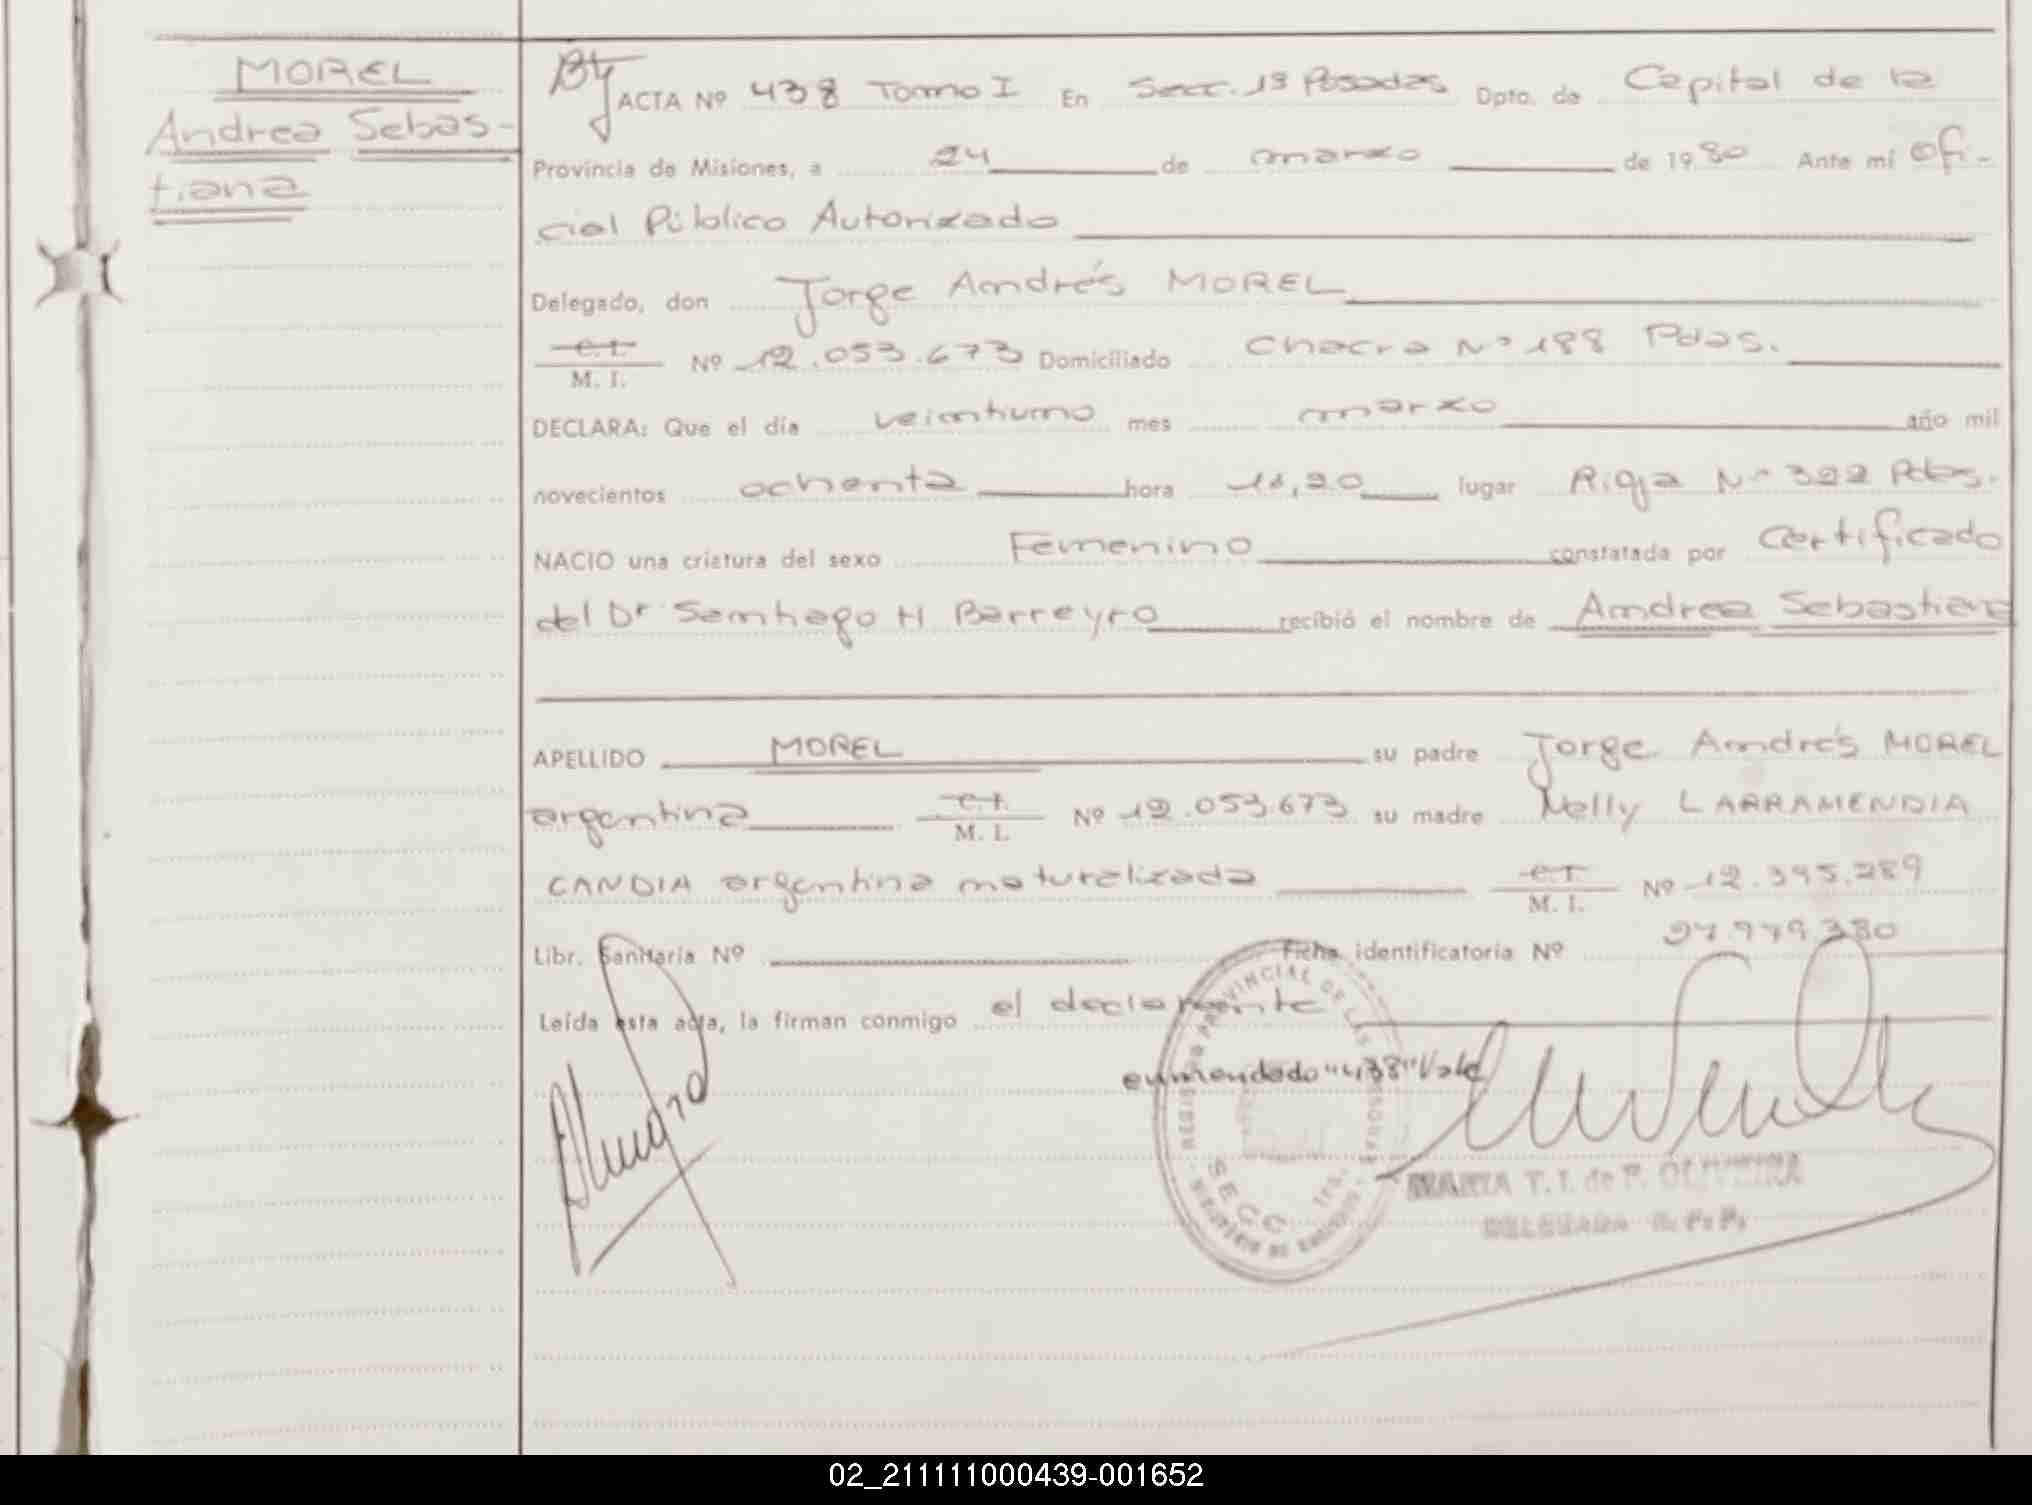 MOREL
Andrea Sebas-
tiana
ACTA Nº 438 Tomo I En Secc. 1ª Posadas Dpto. de Capital de la
Provincia de Misiones, a 24 de marzo de 1980 Ante mí Ofi-
cial Público Autorizado
Delegado, don Jorge Andrés MOREL
C.I. M. I. Nº 12.053.673 Domiciliado Chacra Nº 188 Pdas.
DECLARA: Que el día veintiuno mes marzo año mil
novecientos ochenta hora lugar Rioja Nº 322 Pdas.
NACIO una criatura del sexo Femenino constatada por Certificado
del Dr Santiago H Barreyro recibió el nombre de Andrea Sebastiana
APELLIDO MOREL su padre Jorge Andrés MOREL
argentina C.I. M. I. Nº 12.053.673 su madre Nelly LARRAMENDIA
CANDIA argentina naturalizada C.I. M. I. Nº 12.395.289
Libr. Sanitaria Nº Ficha identificatoria Nº 27.979.380
Leída esta acta, la firman conmigo el declarante
enmendado "438" Vale
REGISTRO PROVINCIAL DE LAS PERSONAS
SECC. 1ra.
MINISTERIO DE GOBIERNO
MARTA T. I. de P. OLIVEIRA
DELEGADA R. P. P.
02_211111000439-001652